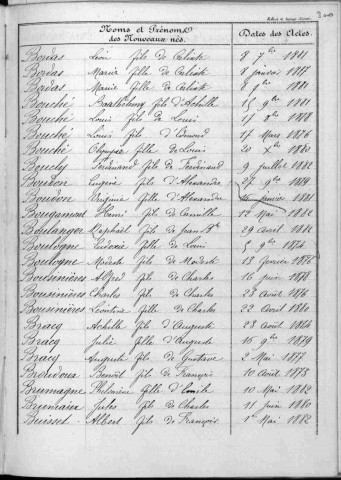 Noms et Prénoms
des Nouveaux nés.
Dates des Actes.
Bordas Léon fils de Célest 8 7bre 1881
Bordas Marie fille de Célest 8 janvier 1877
Bordas Marie fille de Célest 1880
Bouché Barthélemy fils d'Achille 15 9bre 1881
Bouché Louis fils de Louis 1878
Bouché Louis fils d'Edmond 17 Mars 1876
Bouché Olympe fille de Louis 20 Xbre 1880
Boucly Ferdinand fils de Ferdinand 9 juillet 1882
Boudon Eugène fils d'Alexandre 27 9bre 1879
Boudon Virginie fille d'Alexandre janvier 1881
Bougamont Henri fils de Camille 12 Mai 1882
Boulanger Raphaël fils de Jean Bte 29 avril 1882
Boulogne Ludovie fille de Louis 5 9bre 1874
Boulogne Modeste fils de Modeste 13 février 1877
Bousinières Alfred fils de Charles 16 juin 1878
Bousinières Charles fils de Charles 28 août 1876
Bousinières Léontine fille de Charles 22 Avril 1880
Bracq Achille fils d'Auguste 28 août 1874
Bracq Julie fille d'Auguste 16 9bre 1879
Bracq Auguste fils de Gustave 2 Mai 1877
Broudoux Benoît fils de François 10 Août 1878
Brumagne Philomène fille d'Emile 10 Mai 1882
Brunaux Jules fils de Charles 11 juin 1880
Buisset Albert fils de François 1er Mai 1882